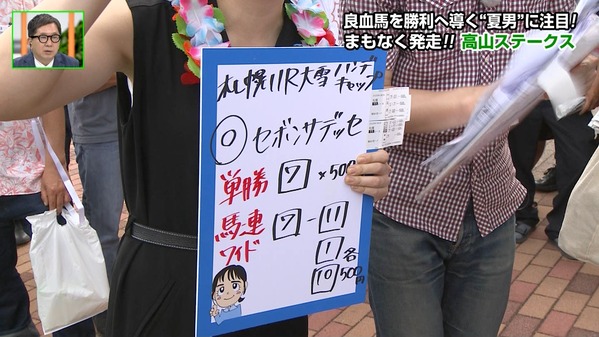 良血馬を勝利へ導く“夏男”に注目!
まもなく発走!! 高山ステークス
札幌11R大雪ハンデ
キャップ
◎セボンサデッセ
単勝 7 ×500
馬連 7-11
ワイド 1 各
10 500円